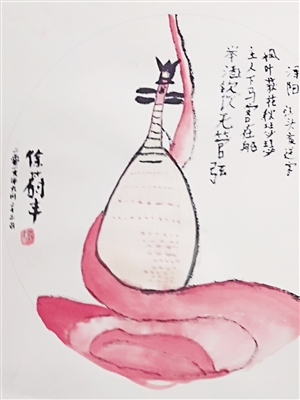 浔阳江头夜送客
枫叶荻花秋瑟瑟
主人下马客在船
举酒欲饮无管弦
徐蔚丰